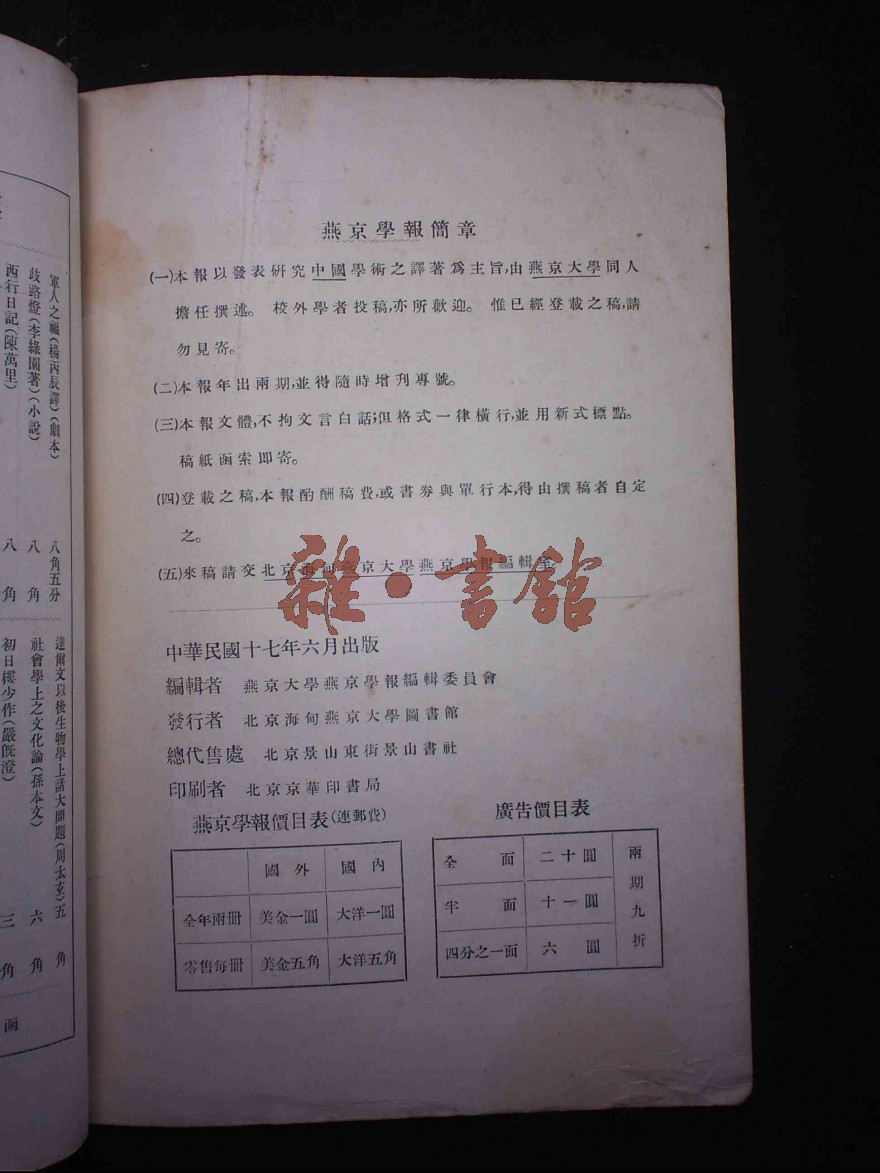 燕京學報簡章
(一)本報以發表研究中國學術之譯著爲主旨,由燕京大學同人
擔任撰述。校外學者投稿,亦所歡迎。惟已經登載之稿,請
勿見寄。
(二)本報年出兩期,並得隨時增刊專號。
(三)本報文體,不拘文言白話;但格式一律橫行,並用新式標點。
稿紙函索卽寄。
(四)登載之稿,本報酌酬稿費,或書劵與單行本,得由撰稿者自定
之。
(五)來稿請交北京海甸燕京大學燕京學報編輯室。
雜·書館
中華民國十七年六月出版
編輯者 燕京大學燕京學報編輯委員會
發行者 北京海甸燕京大學圖書館
總代售處 北京景山東街景山書社
印刷者 北京京華印書局
燕京學報價目表(連郵費)
國外 國內
全年兩册 美金一圓 大洋一圓
零售每册 美金五角 大洋五角
廣告價目表
全面 二十圓
半面 十一圓
四分之一面 六圓
兩期九折
軍人之福(楊丙辰譯)(劇本) 八角五分
歧路燈(李綠園著)(小說) 八角
西行日記(陳萬里) 八角
達爾文以後生物學上諸大問題(周太玄) 五角
社會學上之文化論(孫本文) 六角
初日樓少作(嚴旣澄) 三角
函